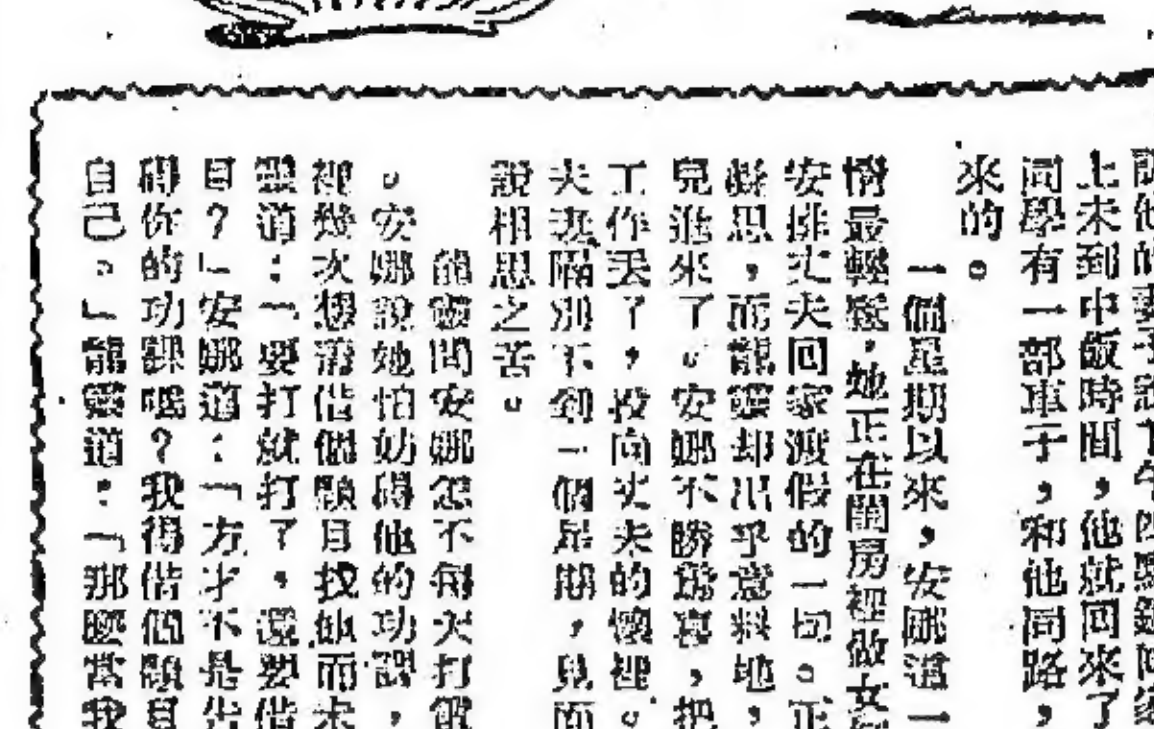 他的妻子說下午四點鐘
上未到中飯時間，他就回來了
同學有一部車子，和他同路，
來的。
一個星期以來，安娜這一
最輕鬆，她正在閨房裡做女
安排丈夫回家渡假的一切。正
思，而龍靈却出乎意料地，
兒進來了。安娜不勝驚喜，把
工作丟了，投向丈夫的懷裡。
夫妻隔別不到一個星期，見面
說相思之苦。
龍靈問安娜怎不每天打電
。安娜說她怕妨碍他的功課，
裡幾次想藉借個題目找他而未
靈道：「要打就打了，還要借
目？」安娜道：「方才不是告
碍你的功課嗎？我得借個題目
自己。」龍靈道：「那麼當我